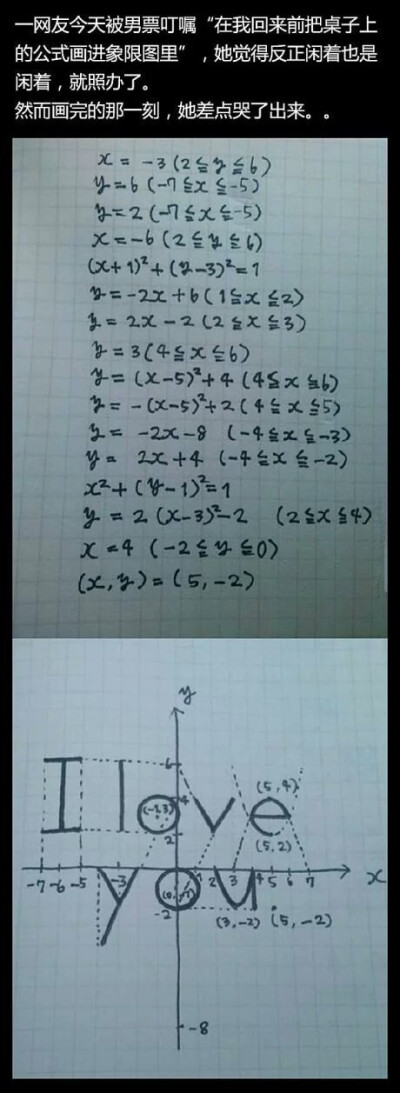 一网友今天被男票叮嘱“在我回来前把桌子上
的公式画进象限图里”，她觉得反正闲着也是
闲着，就照办了。
然而画完的那一刻，她差点哭了出来。。
x = -3 (2≦y≦6)
y=6 (-7≦x≦-5)
y=2 (-7≦x≦-5)
x=-6 (2≦y≦6)
(x+1)²+(y-3)²=1
y=-2x+6 (1≦x≦2)
y=2x-2 (2≦x≦3)
y=3 (4≦x≦6)
y=(x-5)²+4 (4≦x≦6)
y=-(x-5)²+2 (4≦x≦5)
y=-2x-8 (-4≦x≦-3)
y=2x+4 (-4≦x≦-2)
x²+(y-1)²=1
y=2(x-3)²-2 (2≦x≦4)
x=4 (-2≦y≦0)
(x,y)=(5,-2)
y
6
I love
(-1,3)
4
(5,4)
2
(5,2)
-7 -6 -5 -3 1 2 3 4 5 6 7 x
you
-2
(3,-2) (5,-2)
-8